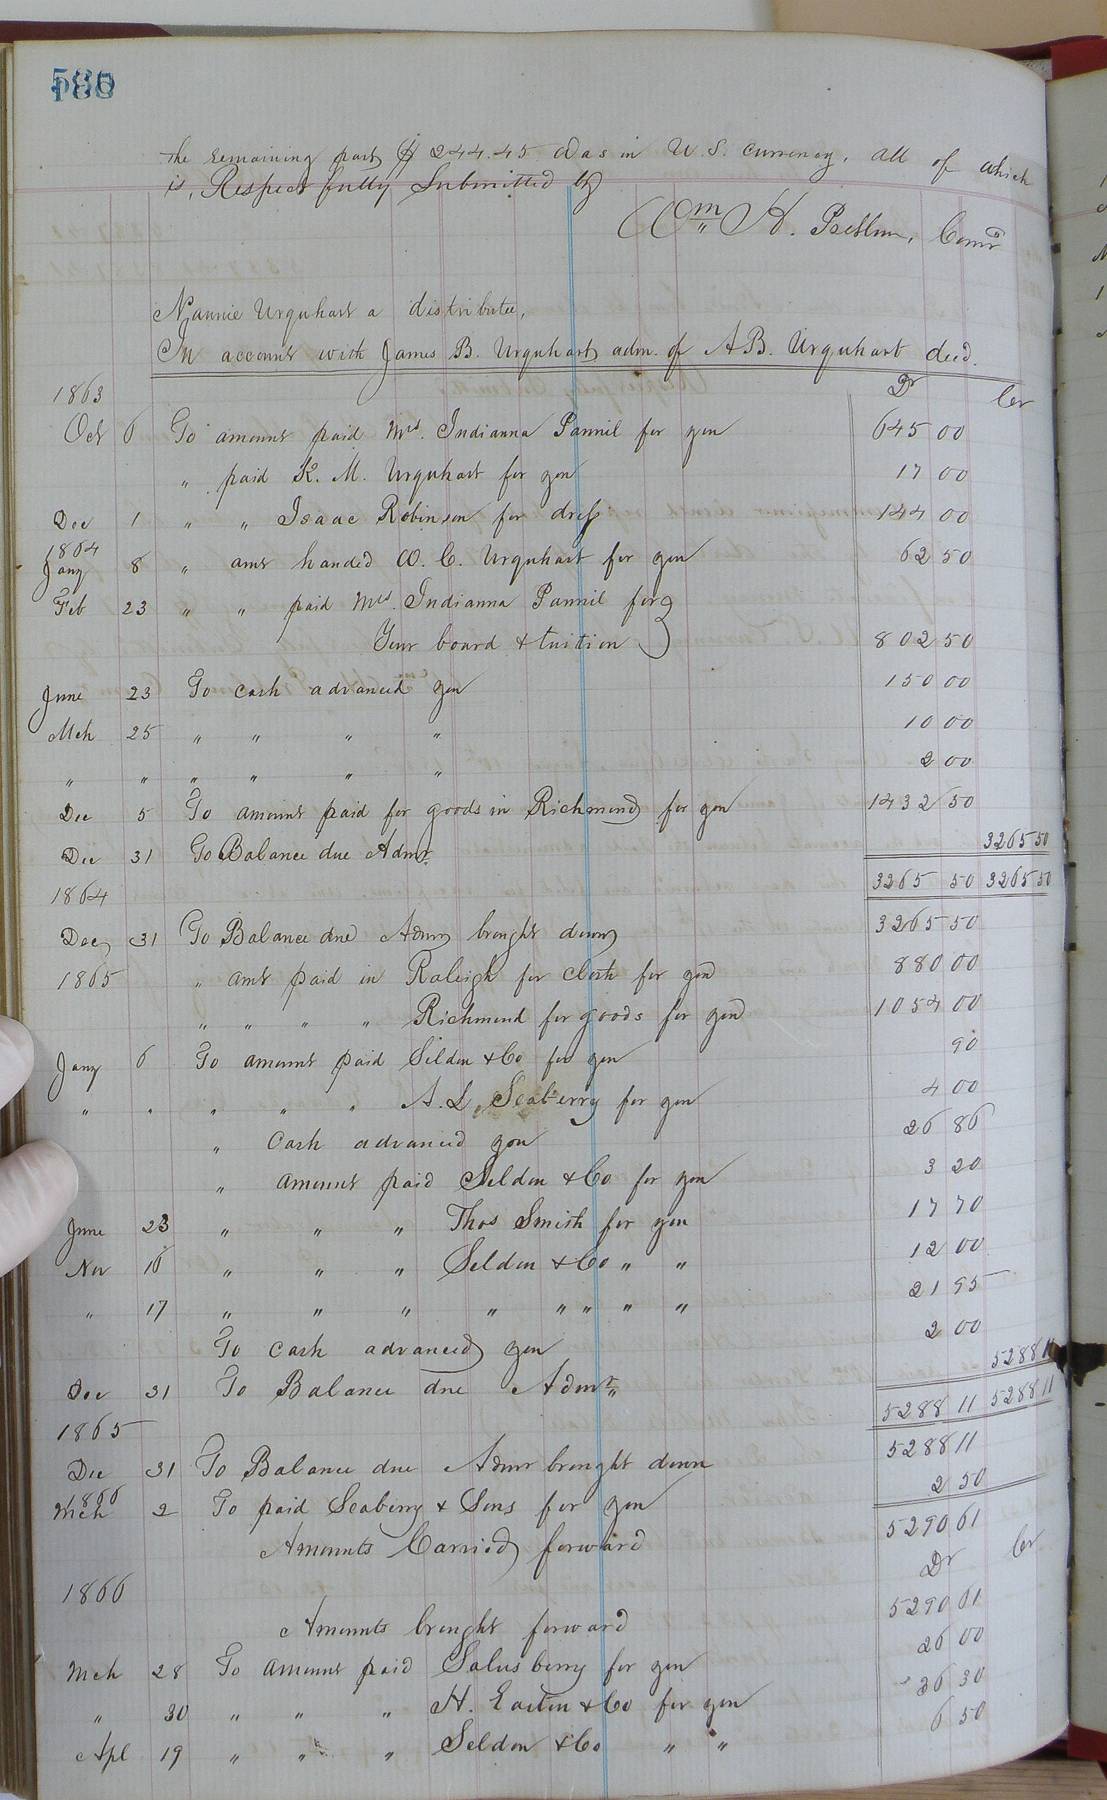 the remaining part $244.45 was in U.S. currency, all of which
is, Respectfully Submitted by
Wm H. Comr
Nannie Urquhart a distributee,
In account with James B. Urquhart adm. of A.B. Urquhart decd.
1863 Dr Cr
Oct 6 To amount paid Mrs. Indianna Pannil for you 645 00
" paid R. M. Urquhart for you 17 00
Dec 1 " " Isaac Robinson for dress 144 00
1864
Jany 8 " amt handed W. C. Urquhart for you 62 50
Feb 23 " " paid Mrs. Indianna Pannil for
Your board & tuition 802 50
June 23 To cash advanced you 150 00
Mch 25 " " " " 10 00
" " " " " " 2 00
Dec 5 To amount paid for goods in Richmond for you 1432 50
Dec 31 To Balance due Admr. 3265 50
1864 3265 50 3265 50
Dec 31 To Balance due Admr brought down 3265 50
1865 " amt paid in Raleigh for cloth for you 880 00
" " " " Richmond for goods for you 1054 00
Jany 6 To amount paid Seldon & Co for you 90
" " " " " A. L. Seaberry for you 4 00
" Cash advanced you 26 86
" amount paid Seldon & Co for you 3 20
June 23 " " " Thos Smith for you 17 70
Nov 16 " " " Seldon & Co " " 12 00
" 17 " " " " " " " " 21 95
To cash advanced you 2 00
Dec 31 To Balance due Admr. 5288 11
1865 5288 11 5288 11
Dec 31 To Balance due Admr brought down 5288 11
1866
Mch 2 To paid Seaberry & Sons for you 2 50
Amounts Carried forward 5290 61
1866 Dr Cr
Amounts brought forward 5290 61
Mch 28 To amount paid Salusberry for you 26 00
" 30 " " " H. & Co for you 36 30
Apl 19 " " " Seldon & Co " " 6 50